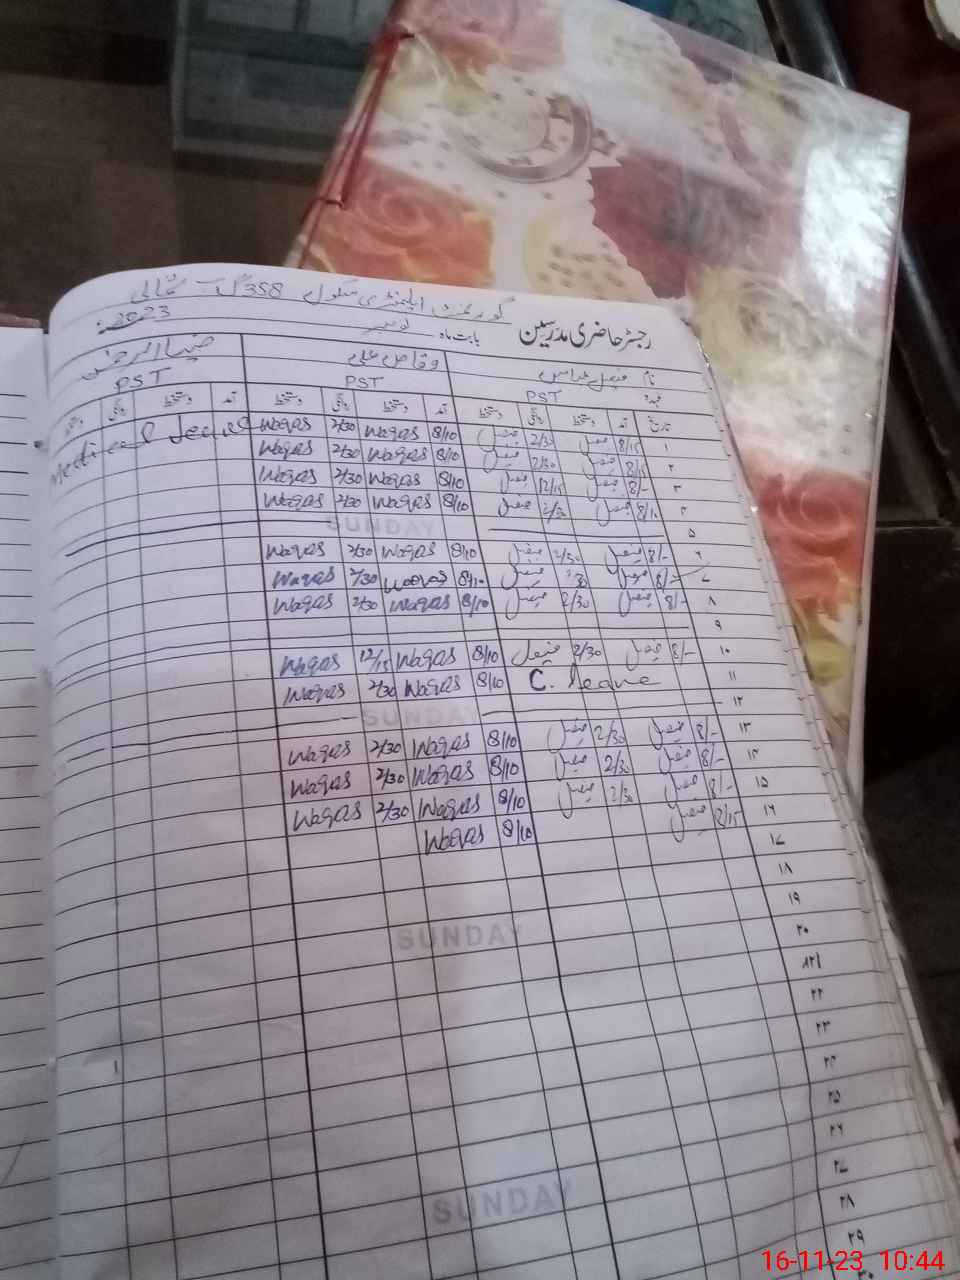 گورنمنٹ ایلیمنٹری سکول 358 گ ب
رجسٹر حاضری مدرسین بابت ماہ نومبر 2023
نام فیصل عباس وقاص علی ضیا الرحمن
عہدہ PST PST PST
تاریخ آمد دستخط روانگی دستخط آمد دستخط روانگی دستخط آمد دستخط روانگی دستخط
۱ 8/15 فیصل 2/30 فیصل 8/10 Waqas 2/30 Waqas Medical leave
۲ 8/15 فیصل 2/30 فیصل 8/10 Waqas 2/30 Waqas
۳ 8/- فیصل 12/15 فیصل 8/10 Waqas 2/30 Waqas
۴ 8/10 فیصل 2/30 فیصل 8/10 Waqas 2/30 Waqas
۵ SUNDAY
۶ 8/- فیصل 2/30 فیصل 8/10 Waqas 2/30 Waqas
۷ 8/- فیصل 2/30 فیصل 8/10 Waqas 2/30 Waqas
۸ 8/- فیصل 2/30 فیصل 8/10 Waqas 2/30 Waqas
۹
۱۰ 8/- فیصل 2/30 فیصل 8/10 Waqas 12/15 Waqas
۱۱ C. leave 8/10 Waqas 2/30 Waqas
۱۲ SUNDAY
۱۳ 8/- فیصل 2/30 فیصل 8/10 Waqas 2/30 Waqas
۱۴ 8/- فیصل 2/30 فیصل 8/10 Waqas 2/30 Waqas
۱۵ 8/- فیصل 2/30 فیصل 8/10 Waqas 2/30 Waqas
۱۶ 8/15 فیصل 8/10 Waqas
۱۷
۱۸
۱۹ SUNDAY
۲۰
۲۱
۲۲
۲۳
۲۴
۲۵
۲۶
۲۷
۲۸ SUNDAY
۲۹
۳۰
16-11-23 10:44